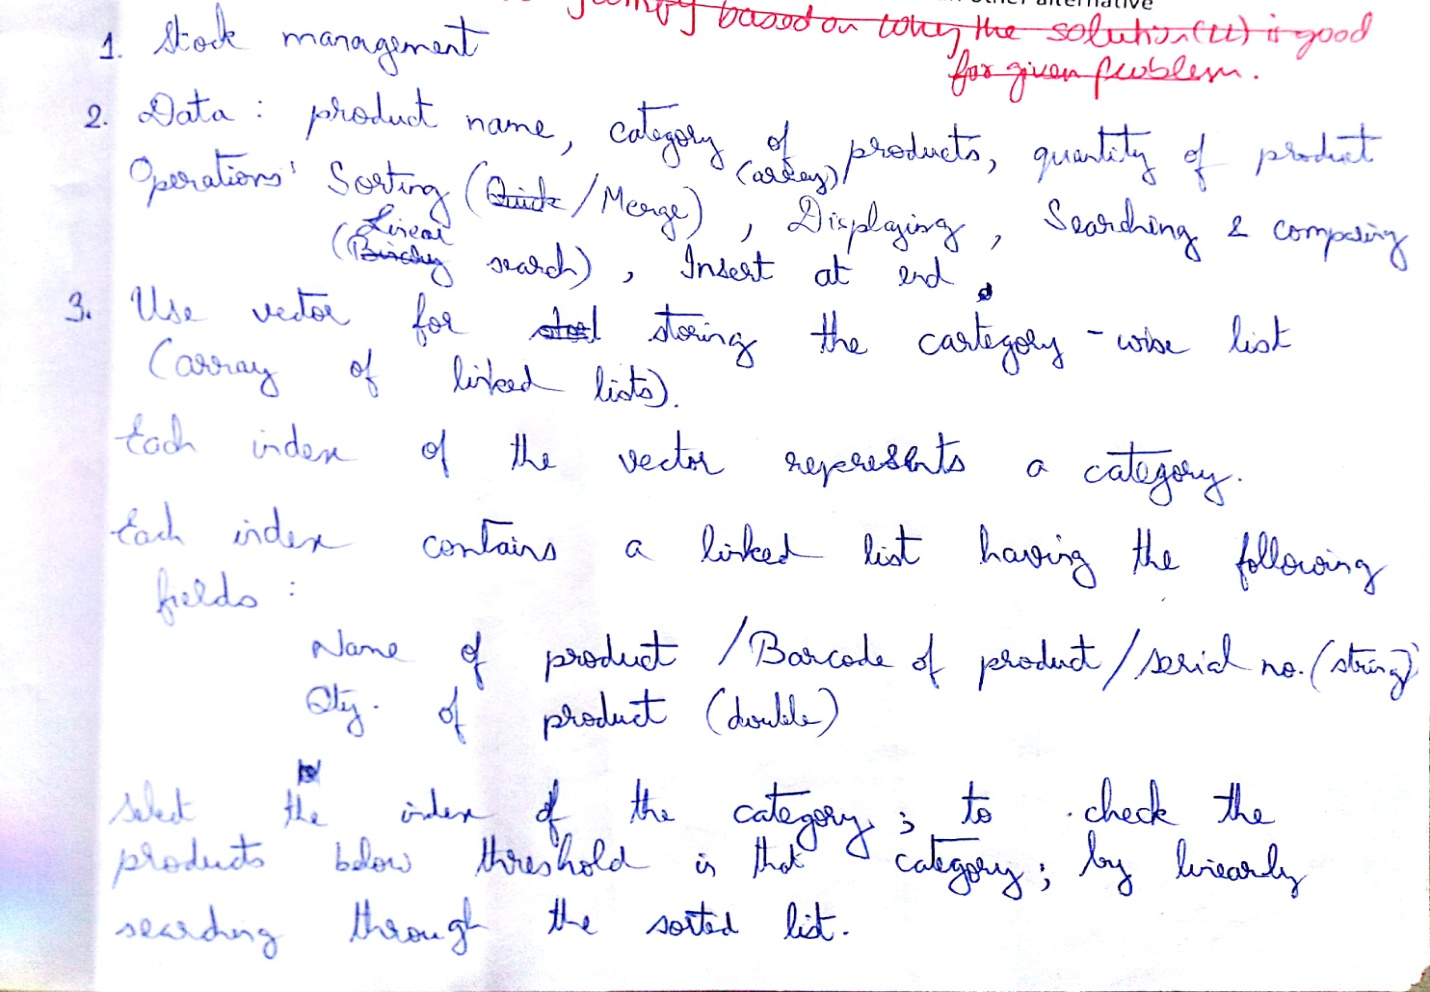 other alternative
based on why the solution(LL) is good
for given problem.
1. Stock management
2. Data : product name, category of products, quantity of product
(array)
Operations: Sorting (Quick/Merge), Displaying, Searching & comparing
Linear
(Binary search), Insert at end.
3. Use vector for storing the cartegory-wise list
(array of linked lists).
Each index of the vector represents a category.
Each index contains a linked list having the following
fields :
Name of product /Barcode of product/serial no. (string)
Qty. of product (double)
Select the index of the category ; to check the
products below threshold is that category; by linearly
searching through the sorted list.